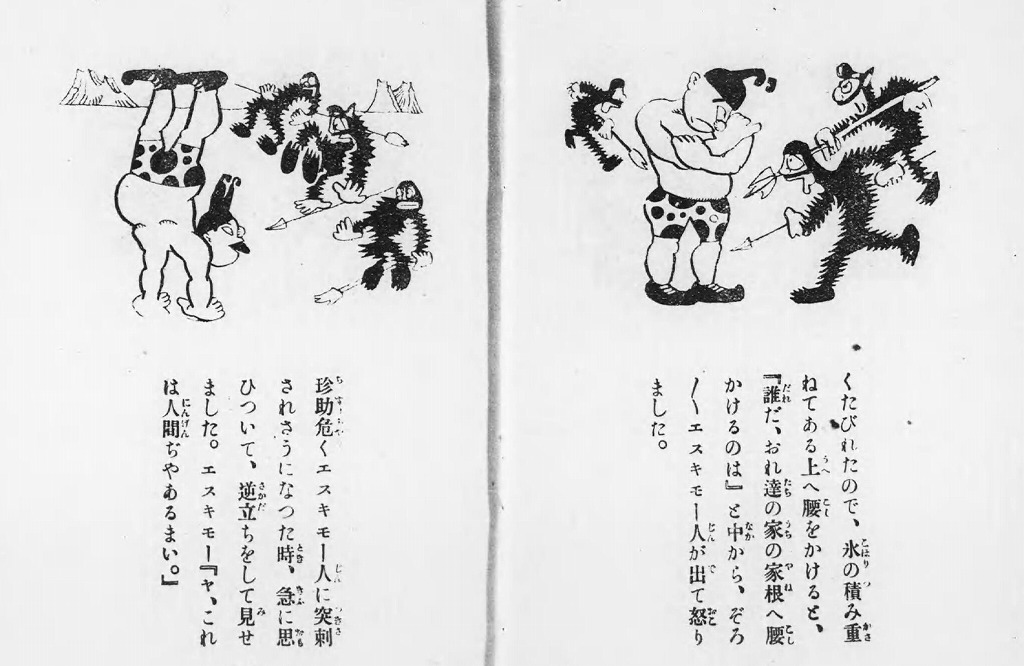 くたびれたので、氷の積み重
ねてある上へ腰をかけると、
『誰だ、おれ達の家の家根へ腰
かけるのは』と中から、ぞろ
〳〵エスキモー人が出て怒り
ました。
珍助危くエスキモー人に突刺
されさうになつた時、急に思
ひついて、逆立ちをして見せ
ました。エスキモー『ヤ、これ
は人間ぢやあるまい。』